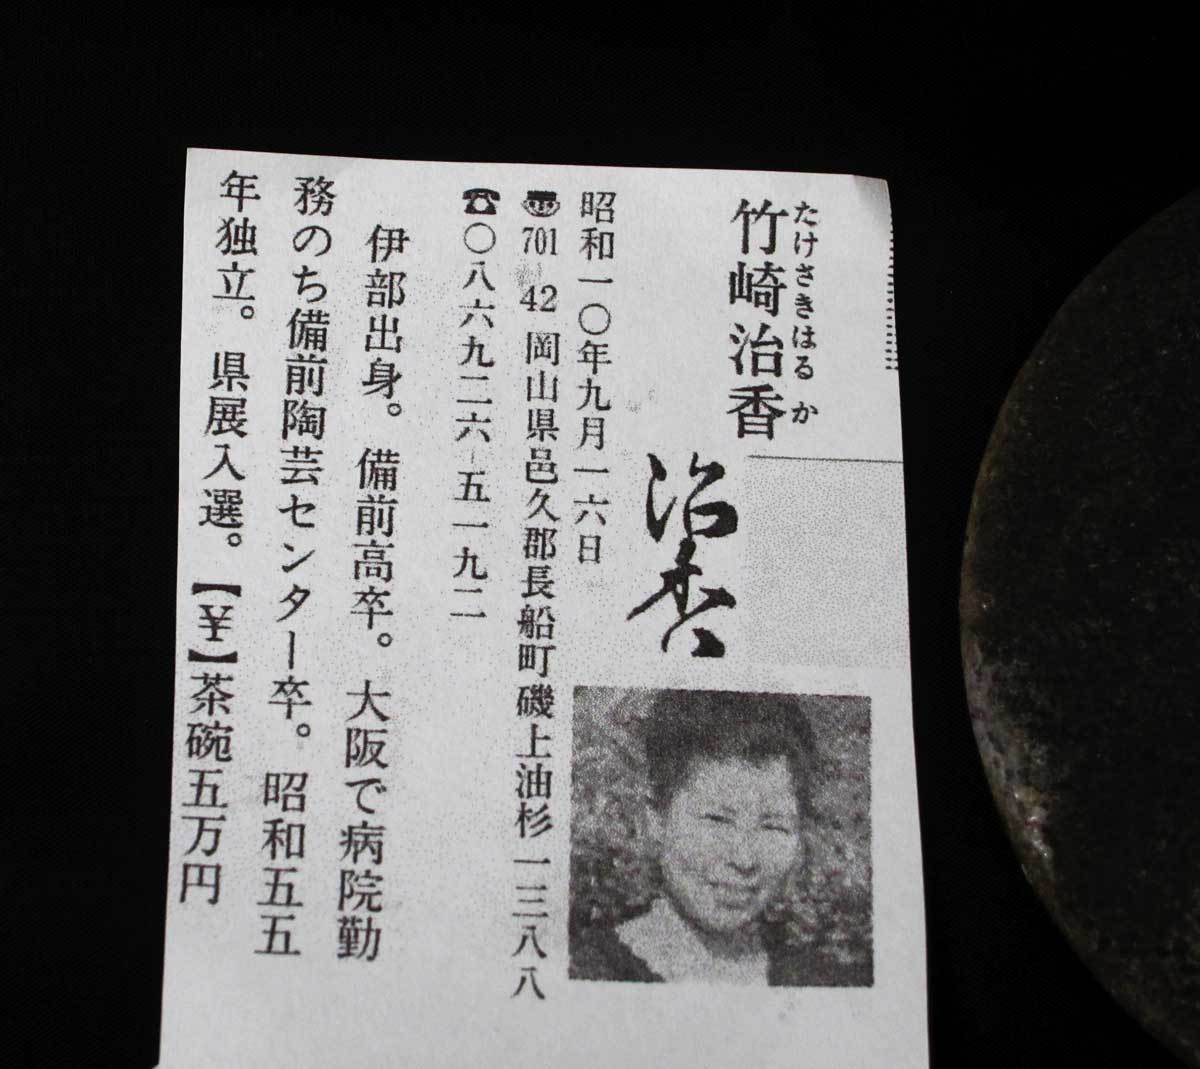 たけさきはるか
竹崎治香
治香
昭和一〇年九月一六日
〠701-42 岡山県邑久郡長船町磯上油杉一三八八
☎〇八六九二六-五一九二
伊部出身。備前高卒。大阪で病院勤
務のち備前陶芸センター卒。昭和五五
年独立。県展入選。【¥】茶碗五万円